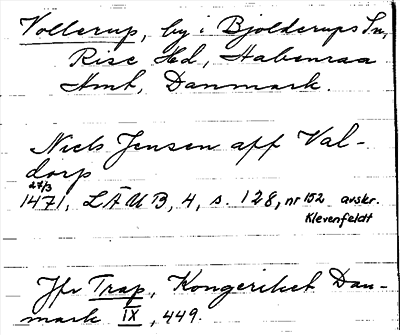 Vollerup, by i Bjolderups Sn,
Rise Hd, Habenraa
Amt, Danmark.
Niels Jensen aff Val-
dorp
27/3
1471, LÄUB, 4, s. 128, nr 152 avskr.
Klevenfeldt
Jfr Trap, Kongeriket Dan-
mark IX, 449.